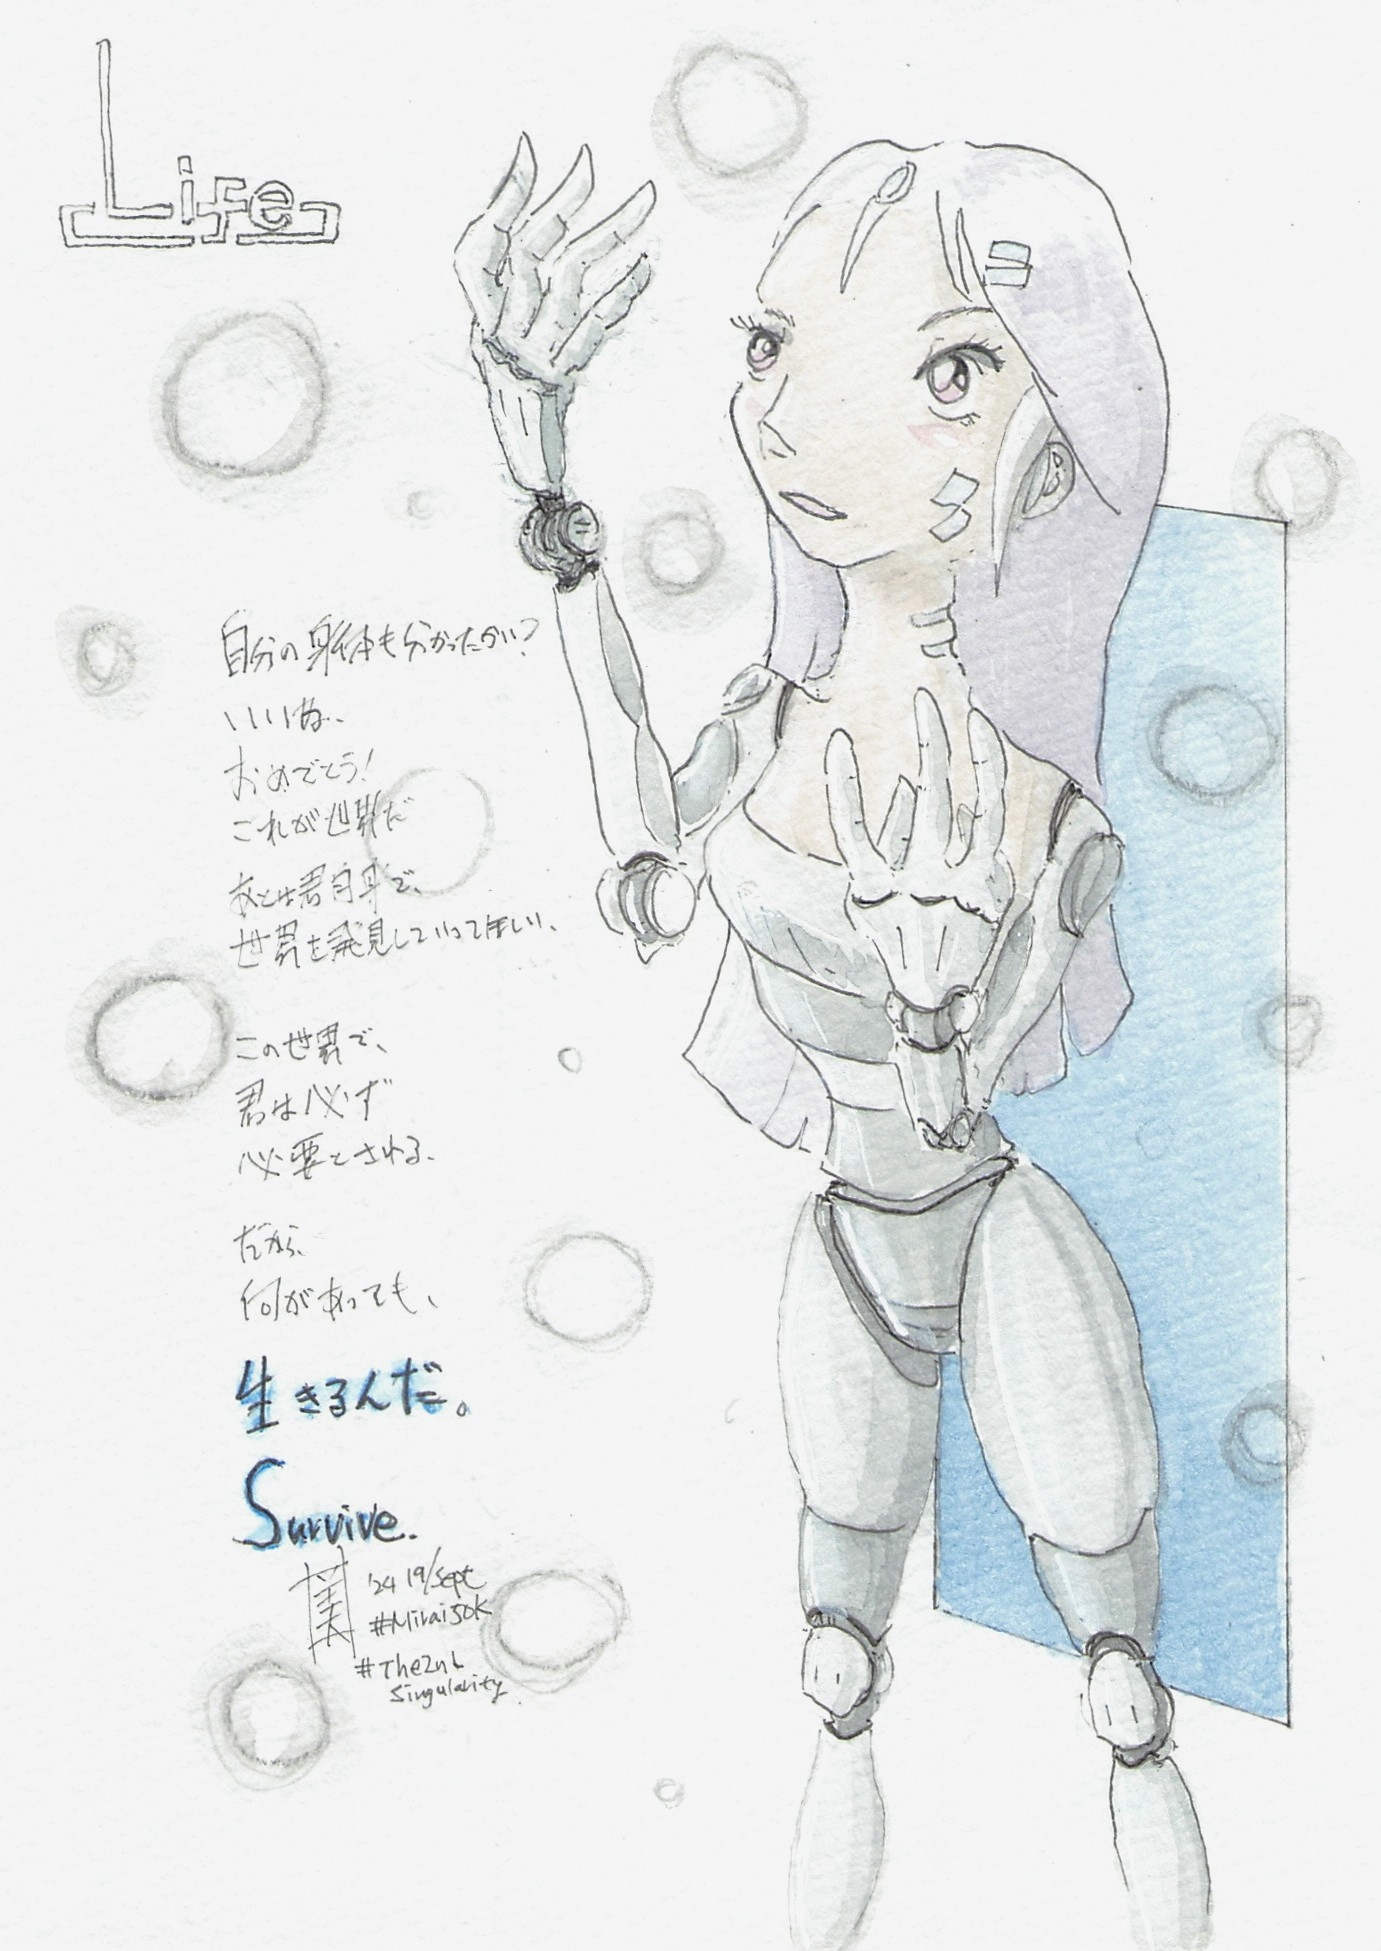 Life
自分の身体も分かったかい?
いいね、
おめでとう!
これが世界だ
あとは君自身で、
世界を発見していってほしい、
この世界で、
君は必ず
必要とされる、
だから、
何があっても、
生きるんだ。
Survive.
'24 19/Sept
#Mirai50K
#The2nd
Singularity